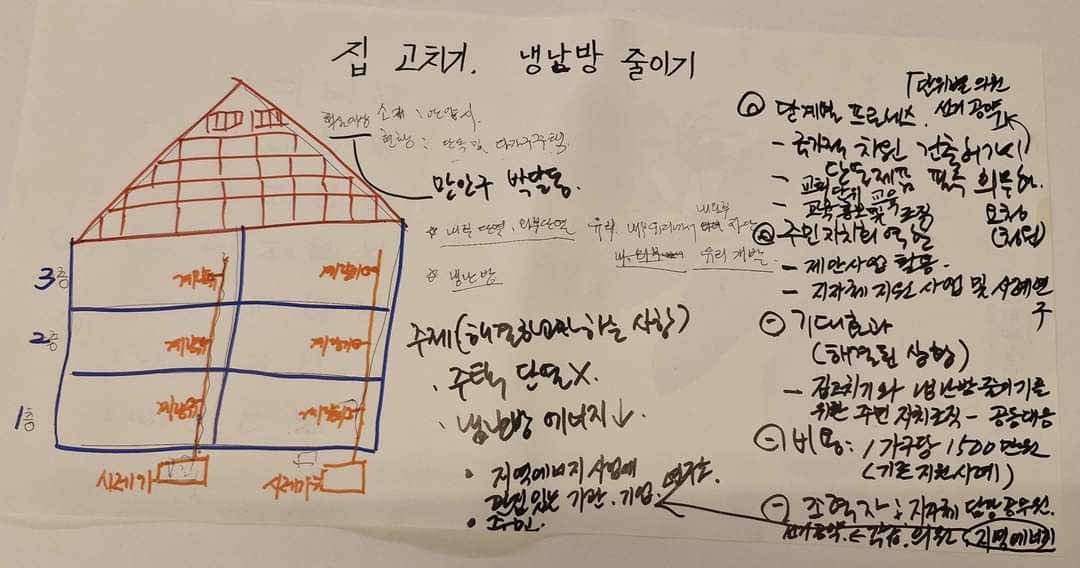 집 고치기. 냉난방 줄이기
핵심대상 소재 : 안양시.
현황 : 단독 및 다가구주택.
만안구 박달동.
내부 단열. 외부단열 유리. 내부
유리 개발.
냉난방
3층
2층
1층
계량기
계량기
계량기
계량기
주제(해결하고자 하는 사항)
· 주택 단열X.
· 냉난방 에너지↓.
• 지역에너지 사업에
관심있는 기관. 기업
• 주민.
「단위별 의원
선거 공약
단계별 프로세스.
- 국가적 차원 건축허가시
단열제품 필수 의무화.
- 교회단위 교육 요청
- 교육홍보 및 조직 (청원)
주민자치회 역할
- 제안사업 활용.
- 지자체 지원 사업 및 사례연구
기대효과
(해결된 상황)
- 집고치기와 냉난방줄이기를
위한 주민 자치조직 - 공동대응
비용 : 1가구당 1500만원
(기존지원사례)
조력자 : 지자체 담당공무원.
선거공약. 의원. 지역에너지